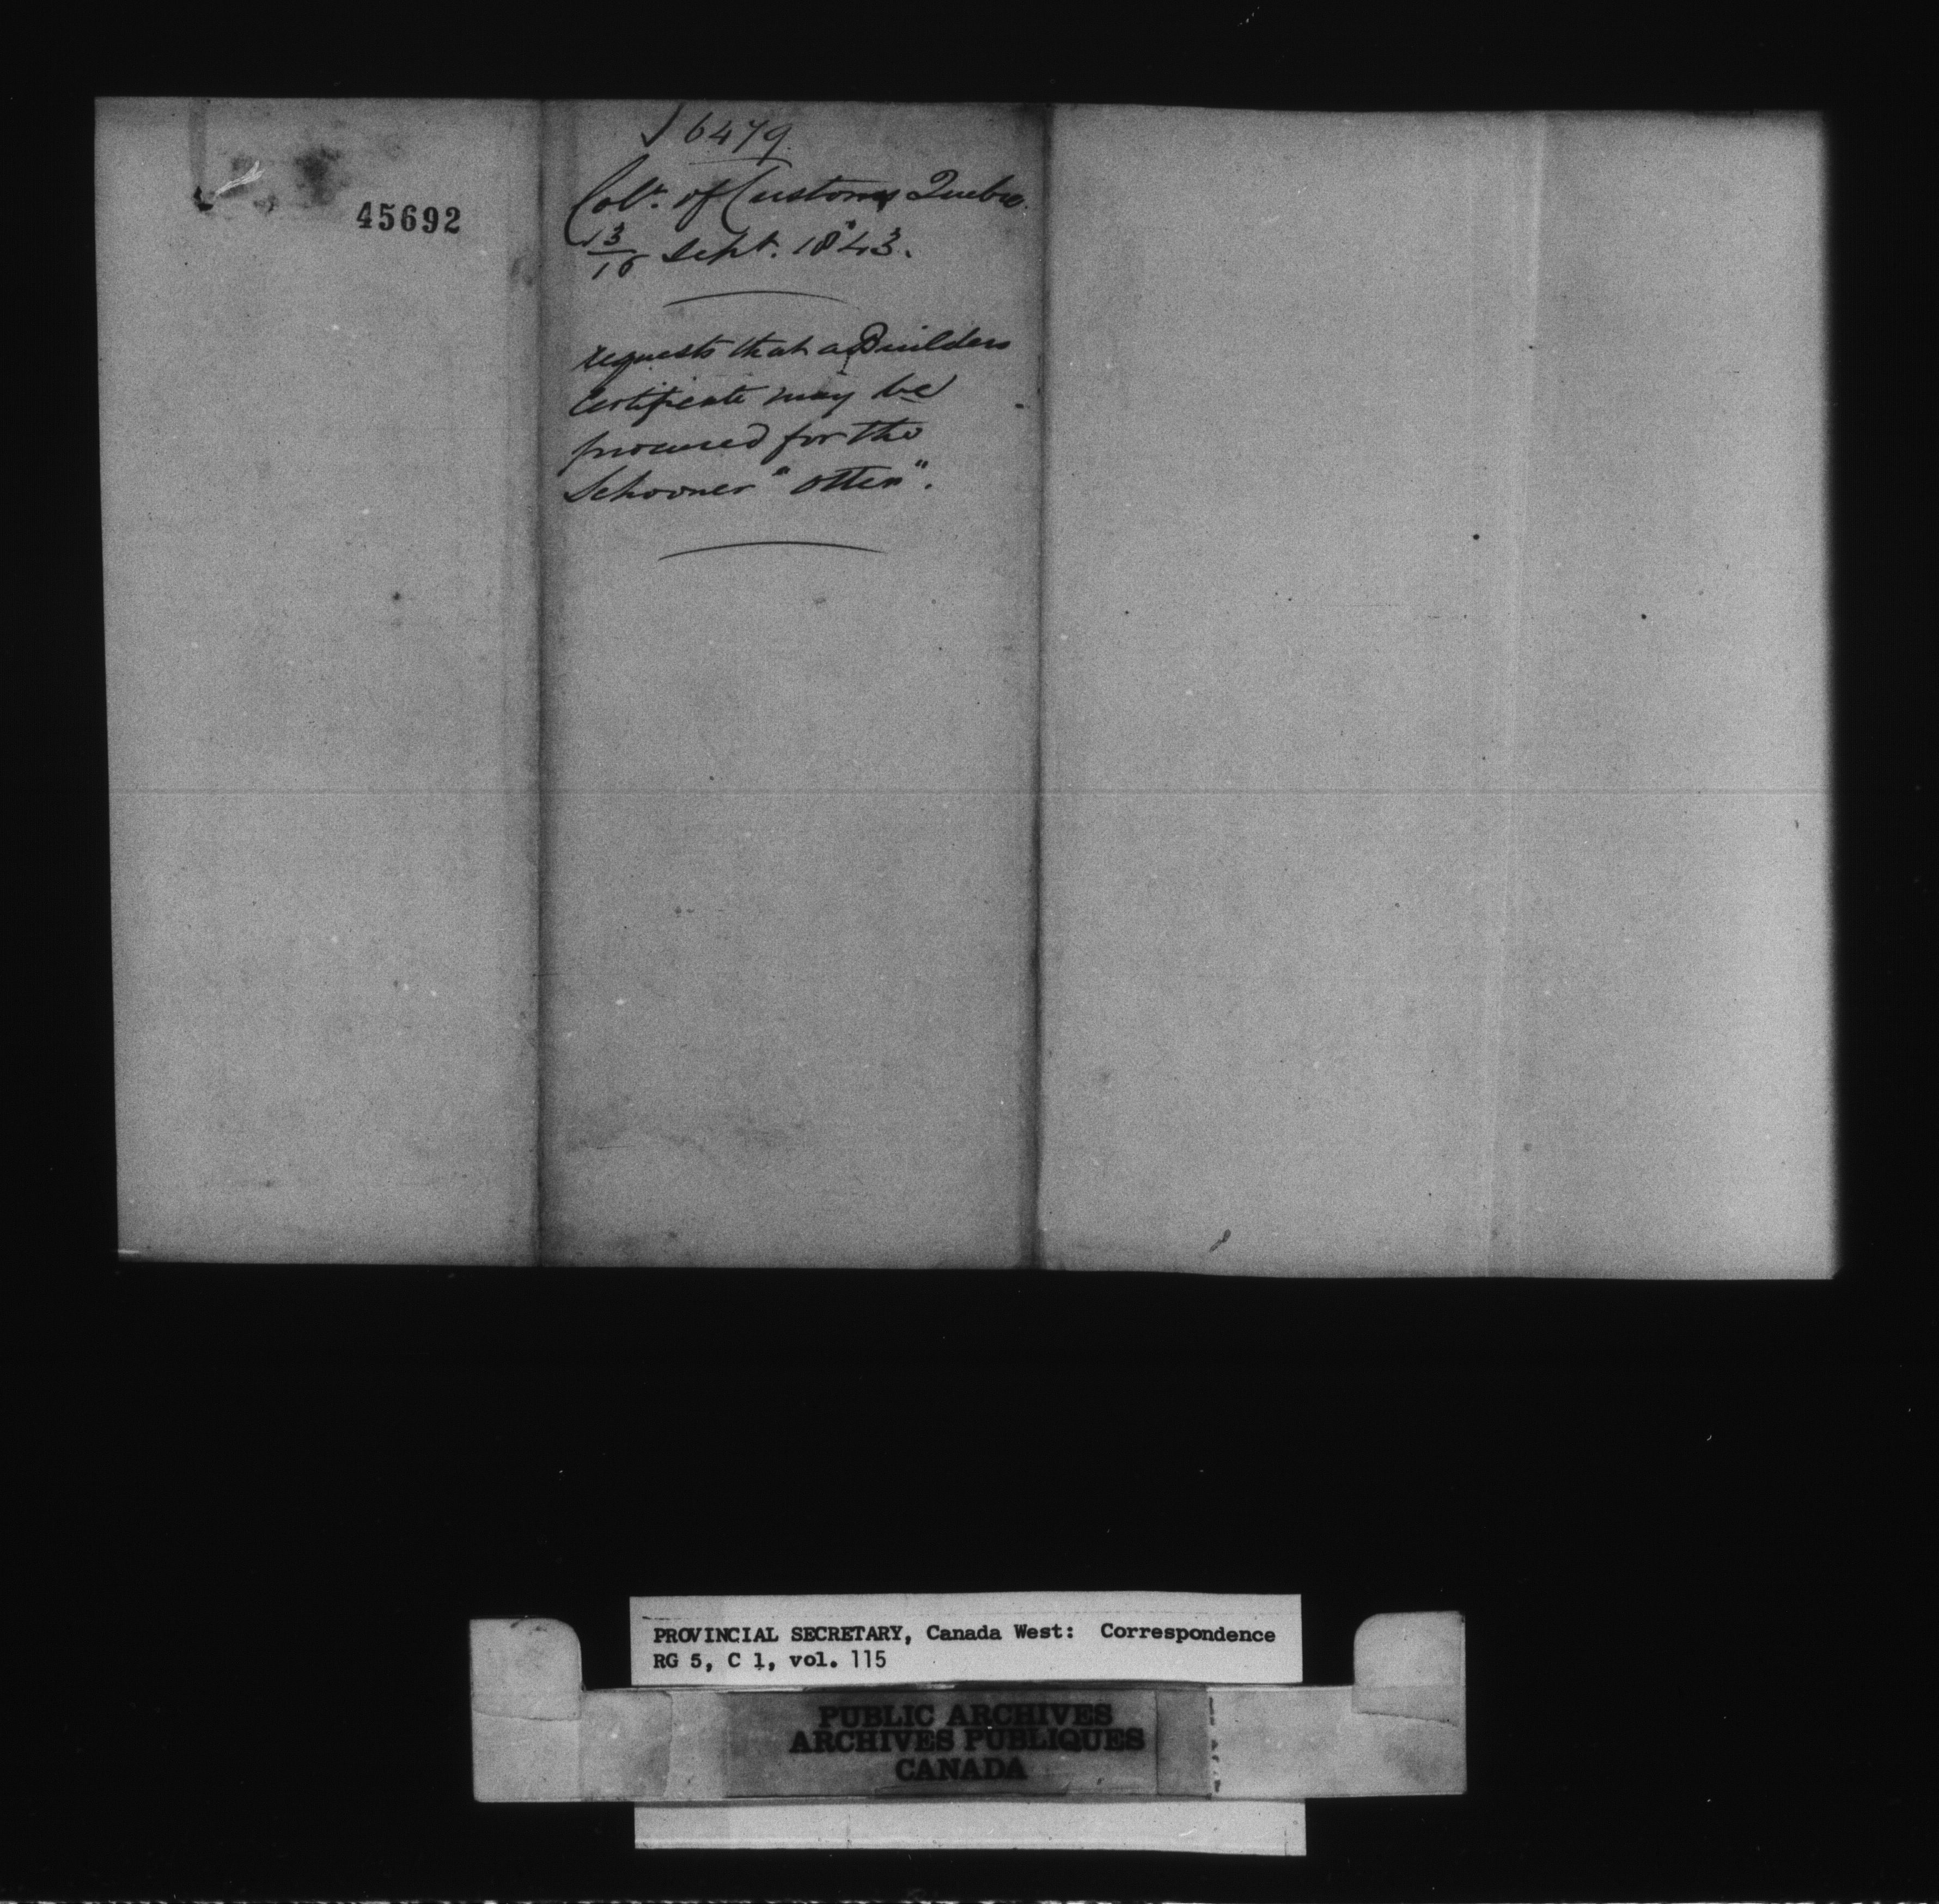 45692
6479.
Colr. of Customs Quebec.
13/16 Sept. 1843.
requests that a Builders
Certificate may be
procured for the
Schooner "Otter".
PROVINCIAL SECRETARY, Canada West: Correspondence
RG 5, C 1, vol. 115
PUBLIC ARCHIVES
ARCHIVES PUBLIQUES
CANADA